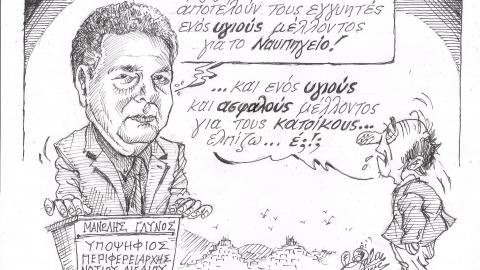 αποτελούν τους εγγυητές
ενός υγιούς μέλλοντος
για το Ναυπηγείο!
... και ενός υγιούς
και ασφαλούς μέλλοντος
για τους κατοίκους...
ελπίζω... Ε;!;
ΜΑΝΩΛΗΣ ΓΛΥΝΟΣ
ΥΠΟΨΗΦΙΟΣ
ΠΕΡΙΦΕΡΕΙΑΡΧΗΣ
ΝΟΤΙΟΥ ΑΙΓΑΙΟΥ